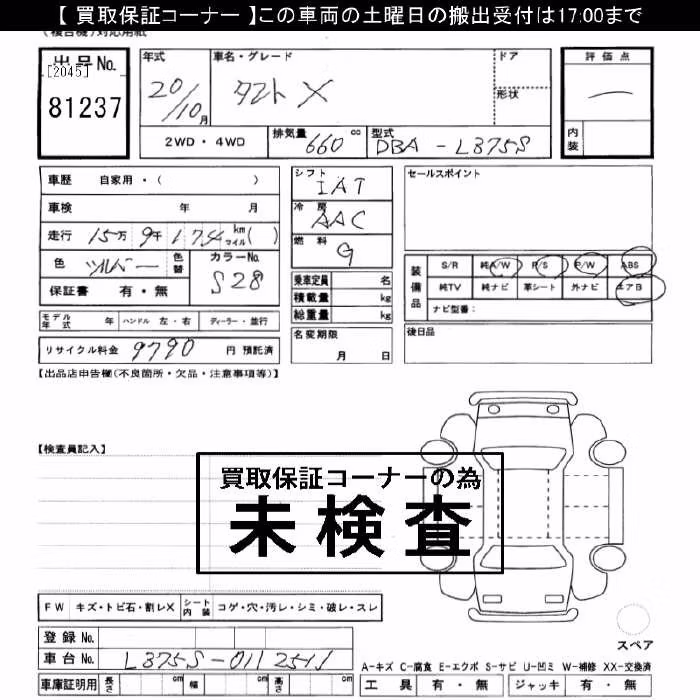 【 買取保証コーナー 】この車両の土曜日の搬出受付は17:00まで
出品No.
[2045]
81237
年式
20/10月
車名・グレード
タント X
ドア
形状
評価点
内装
2WD・4WD
排気量 660 cc
型式 DBA - L375S
車歴 自家用・( )
車検 年 月
走行 15万 9千 1 754 km マイル( )
色 シルバー 色替
カラーNo. S28
保証書 有・無
シフト IAT
冷房 AAC
燃料 G
乗車定員 名
積載量 kg
総重量 kg
セールスポイント
装備品
S/R 純A/W P/S P/W ABS
純TV 純ナビ 革シート 外ナビ エアB
ナビ型番：
モデル年式 年 ハンドル 左・右 ディーラー・並行
名変期限
月 日
後日品
リサイクル料金 9790 円 預託済
【出品店申告欄(不良箇所・欠品・注意事項等)】
【検査員記入】
買取保証コーナーの為
未検査
FW キズ・トビ石・割レX シート内装 コゲ・穴・汚レ・シミ・破レ・スレ
登録 No.
車台 No.
スペア
A-キズ C-腐食 E-エクボ S-サビ U-凹ミ W-補修 XX-交換済
車庫証明用 長さ cm 幅 cm 高さ cm
工具 有・無 ジャッキ 有・無